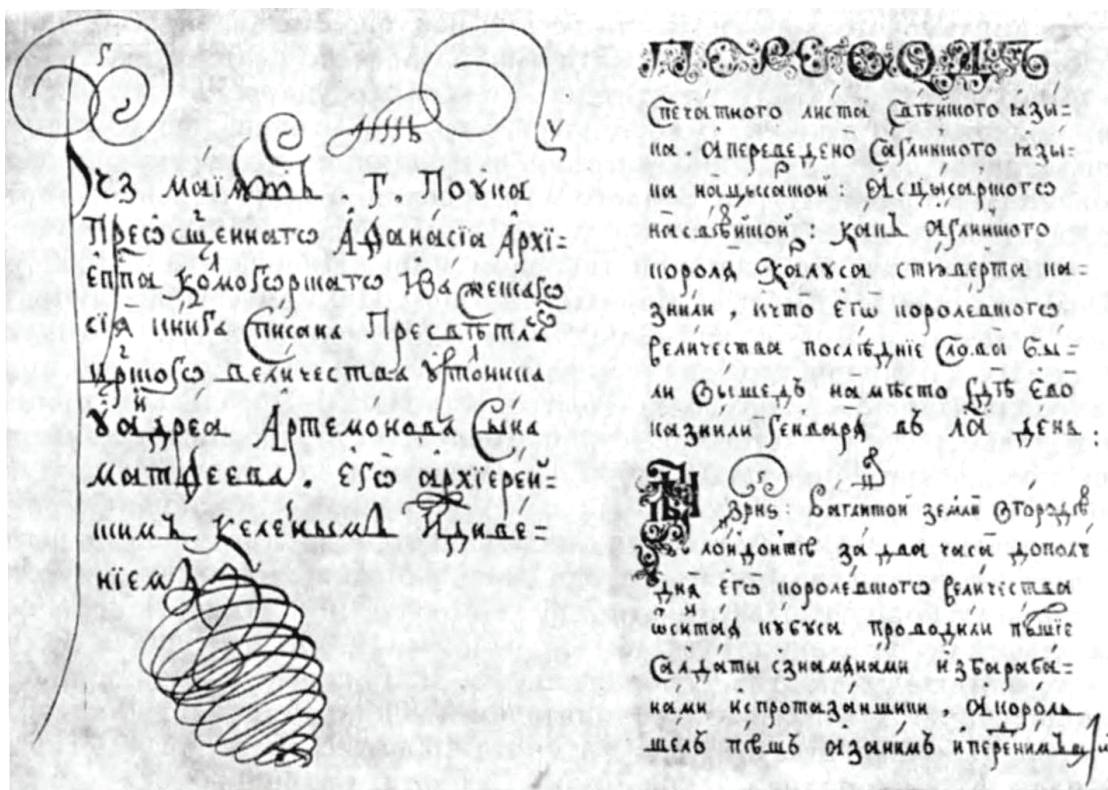 маїѧ
Преѡсщеннагѡ Аѳанасїа Архї-
еппа Холмогорскагѡ
сїѧ книга Списана Пресвѣтла
Црскогѡ величества
Артемонова Сына
матѳеева. егѡ архїерей-
скимъ келейнымъ Иждиве-
нїемъ
ПЕРЕВОДЪ
Спечатного листа Свѣйского язы-
ка. апереведено Саглинского язы-
ка нацысарской: Асцысарского
насвѣйской, какъ Аглинского
короля Калуса стюверта ка-
знили, ичто егѡ королевского
величества послѣднїе Слова бы-
ли вышедъ намѣсто гдѣ Его
казнили генваря въ ла день.
Ваглинской землѣ вгородѣ
лондонѣ за два часа дополꙋ
дня его королевского величества
проводили пѣшїе
Салдаты сзнамянами избараба-
нами испротазанщики, Акороль
шелъ пѣшъ азанимъ ипереднимъ